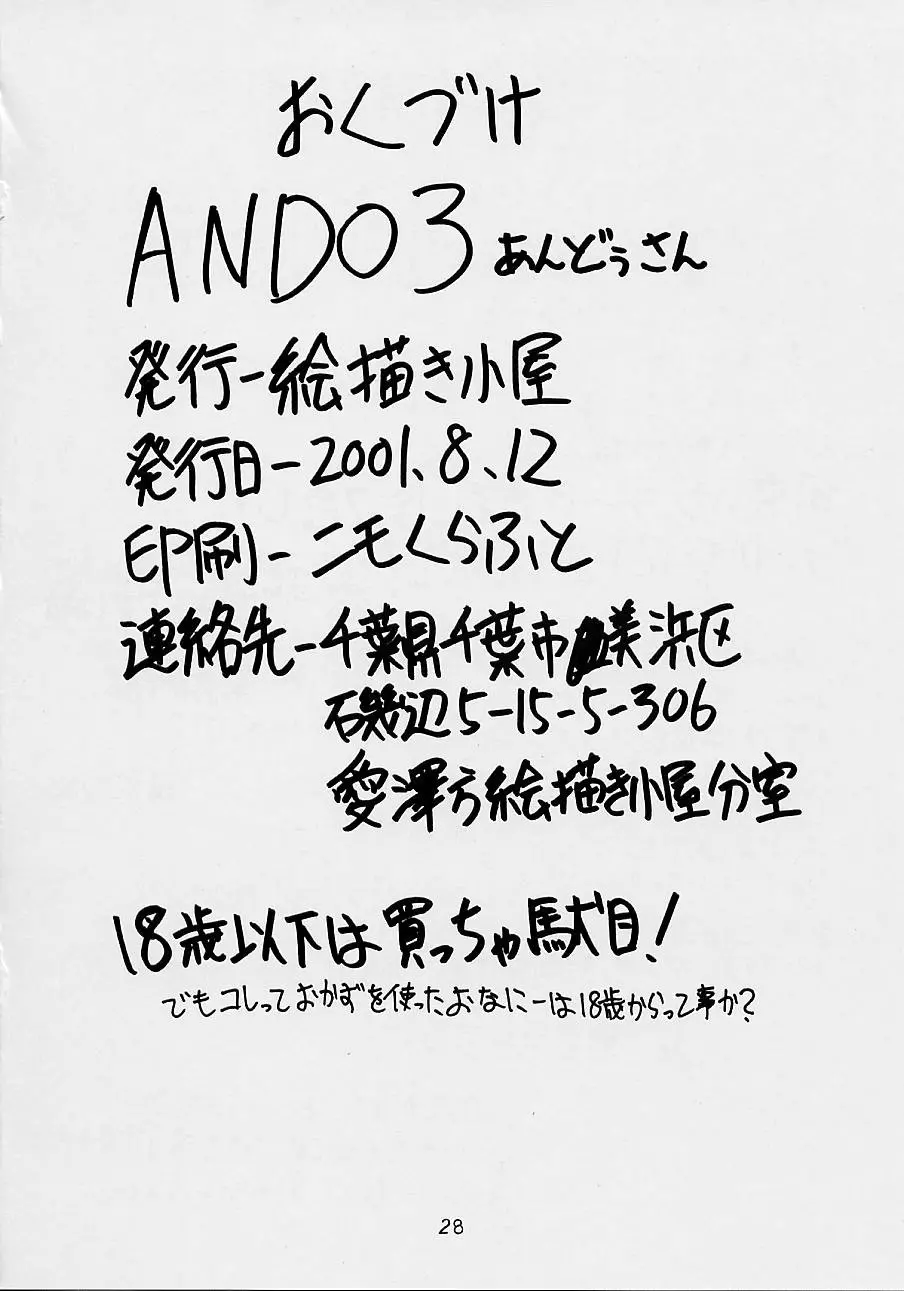 おくづけ
ANDO3 あんどぅさん
発行ー絵描き小屋
発行日ー2001.8.12
印刷ーニモくらふと
連絡先ー千葉県千葉市美浜区
磯辺5-15-5-306
愛澤方絵描き小屋分室
18歳以下は買っちゃ駄目!
でもコレっておかずを使ったおなにーは18歳からって事か?
28